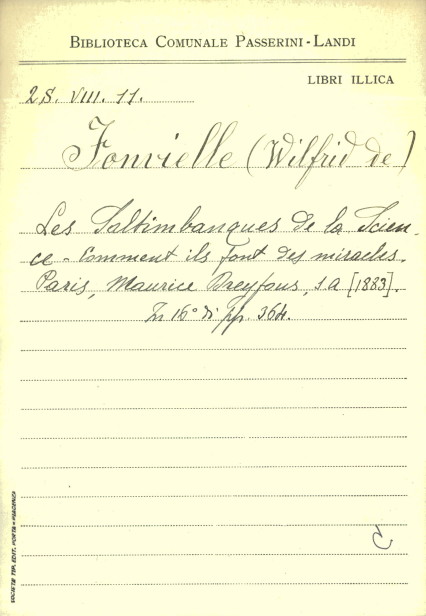 BIBLIOTECA COMUNALE PASSERINI-LANDI
LIBRI ILLICA
2S. VIII. 11.
Fonvielle (Wilfrid de)
Les Saltimbanques de la Scien-
ce - Comment ils font des miracles.
Paris, Maurice Dreyfous, S.A [1883].
In 16° di pp. 364.
SOCIETÀ TIP. EDIT. PORTA - PIACENZA